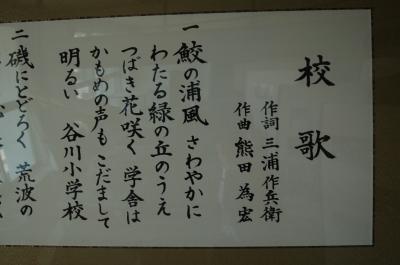 校歌
作詞 三浦作兵衛
作曲 熊田為宏
一 鮫の浦風 さわやかに
わたる緑の丘のうえ
つばき花咲く 学舎は
かもめの声も こだまして
明るい 谷川小学校
二 磯にとどろく 荒波の